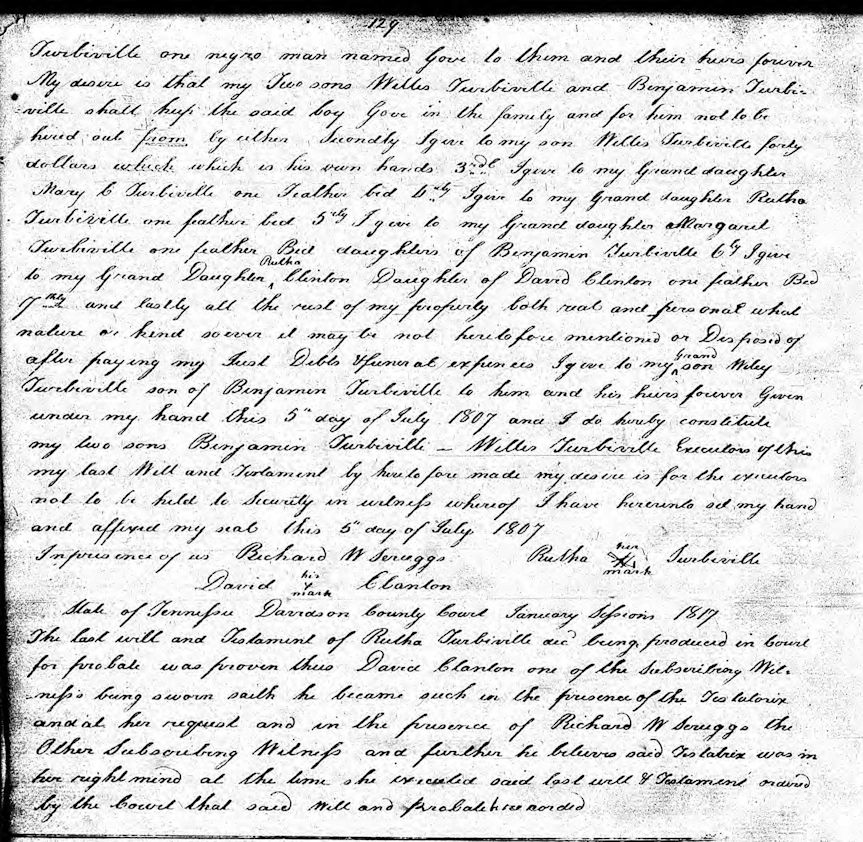 129
Turbiville one negro man named Gove to them and their heirs forever
My desire is that my Two sons Willes Turbiville and Benjamin Turbi-
ville shall keep the said boy Gove in the family and for him not to be
hired out from by either Secondly I give to my son Willes Turbiville forty
dollars which which is his own hands 3rdl I give to my Grand daughter
Mary C Turbiville one Feather bed 4thly I give to my Grand daughter Rutha
Turbiville one feather bed 5thly I give to my Grand daughter Margaret
Turbiville one feather Bed daughters of Benjamin Turbiville 6ly I give
to my Grand Daughter Rutha Clinton Daughter of David Clenton one feather Bed
7thly and lastly all the rest of my property both real and personal what
nature or kind soever it may be not heretofore mentioned or Disposed of
after paying my Just Debts & funeral expences I give to my Grand son Wiley
Turbiville son of Benjamin Turbiville to him and his heirs forever Given
under my hand this 5th day of July 1807 and I do hereby constitute
my two sons Benjamin Turbiville – Willes Turbiville Executors of this
my last Will and Testament by heretofore made my desire is for the executors
not to be held to Security in witness whereof I have hereunto set my hand
and affixed my seal this 5th day of July 1807
In presence of us Richard W Scruggs Rutha her mark Turbiville
David his + mark Clanton
State of Tennessee Davidson County Court January Sessions 1817
The last will and Testament of Rutha Turbiville decd being produced in Court
for probate was proven thus David Clanton one of the Subscribing Wit-
-ness's being sworn saith he became such in the presence of the Testatorix
and at her request and in the presence of Richard W Scruggs the
Other Subscribing Witness and further he believes said Testatrix was in
her right mind at the time she executed said last will & Testament ordered
by the Court that said Will and Probate be recorded